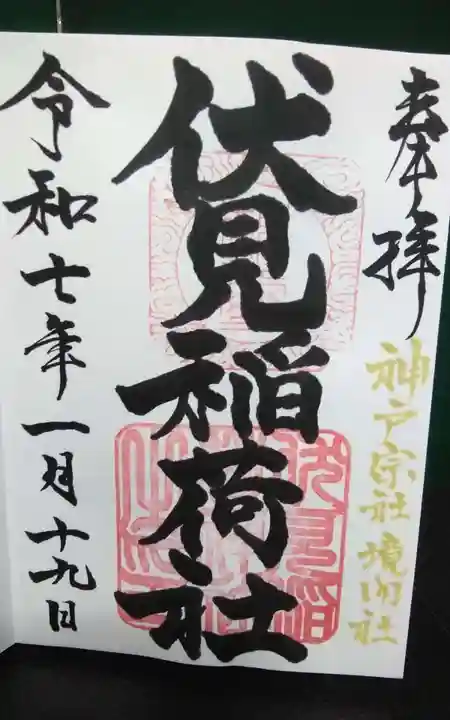 奉拝
神戸宗社 境内社
伏見稲荷社
令和七年一月十九日